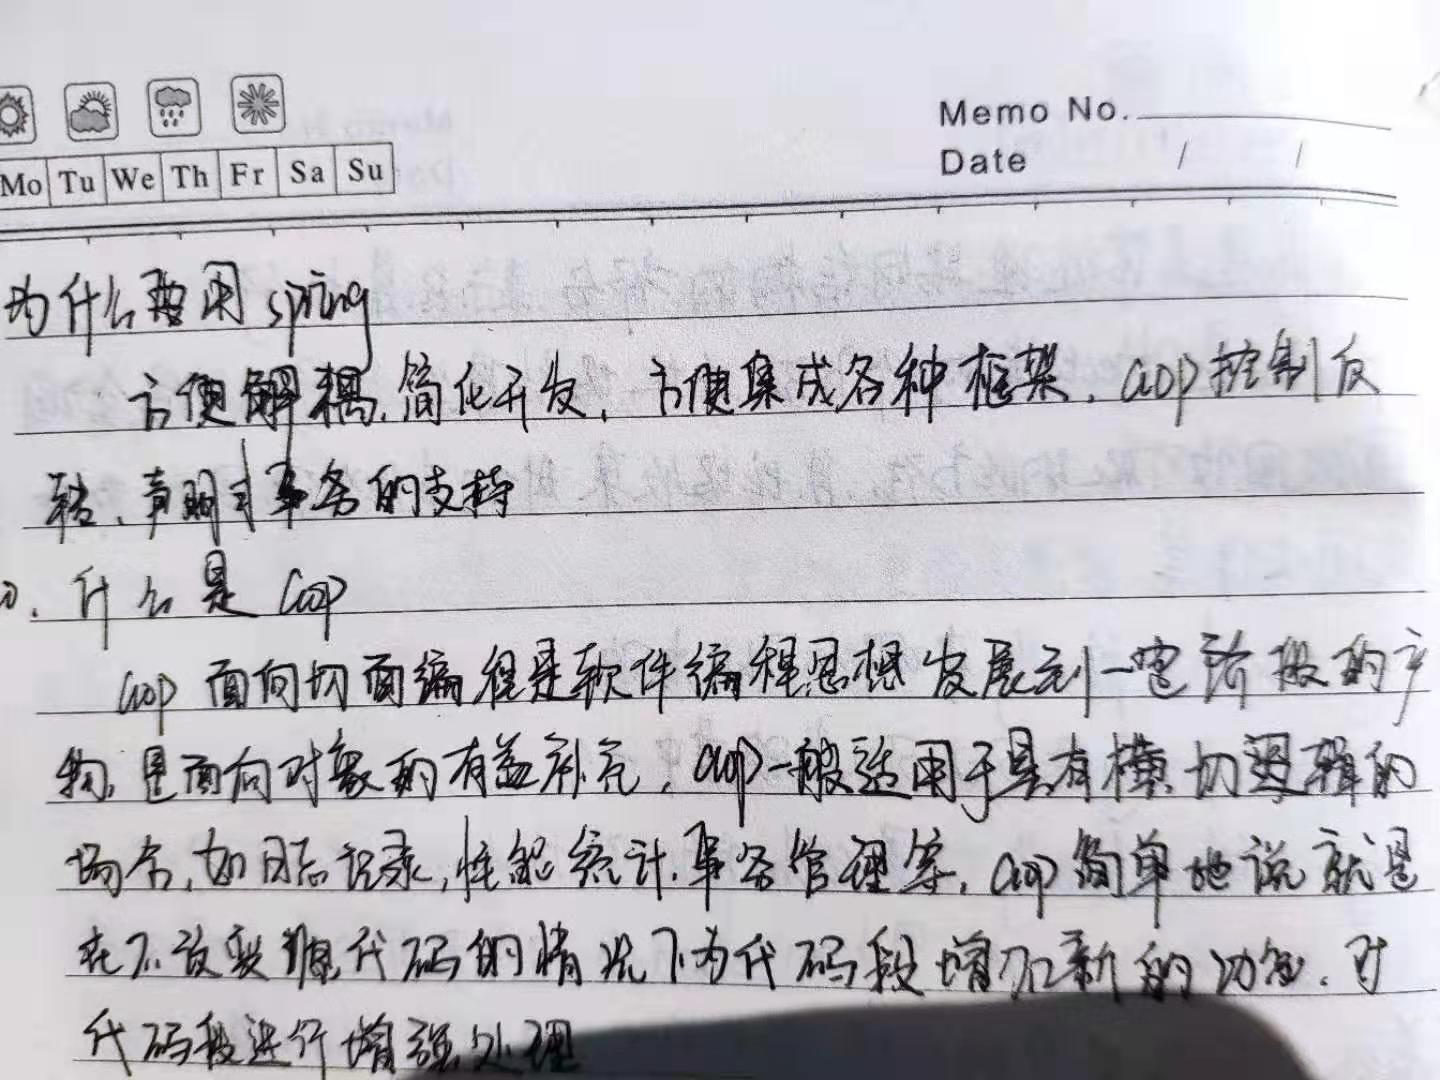 Memo No.
Date / /
Mo Tu We Th Fr Sa Su
为什么要用 spring
方便解耦,简化开发,方便集成各种框架,aop控制反
转、声明式事务的支持
、什么是 aop
aop 面向切面编程是软件编程思想发展到一定阶段的产
物,是面向对象的有益补充,aop一般适用于具有横切逻辑的
场合,如日志记录,性能统计,事务管理等,aop简单地说就是
在不改变源代码的情况下为代码段增加新的功能,对
代码段进行增强处理